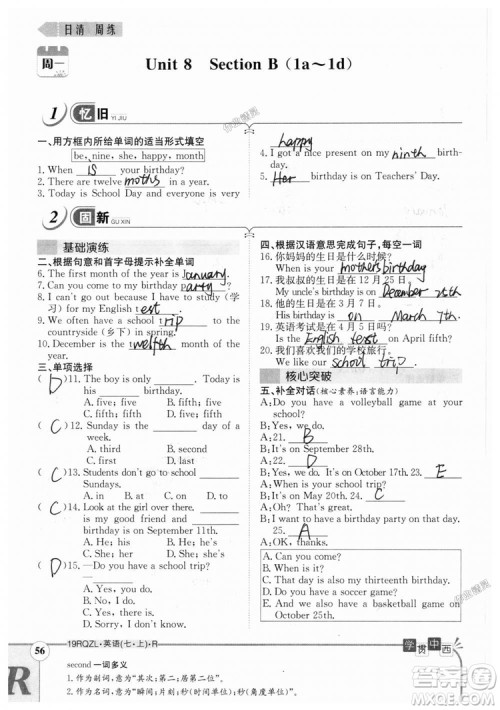 日清 周练
周一
Unit 8 Section B（1a～1d）
1 忆旧 YI JIU
一、用方框内所给单词的适当形式填空
be, nine, she, happy, month
1. When is your birthday?
2. There are twelve moths in a year.
3. Today is School Day and everyone is very
happy
4. I got a nice present on my ninth birthday.
5. Her birthday is on Teachers' Day.
2 固新 GU XIN
基础演练
二、根据句意和首字母提示补全单词
6. The first month of the year is January.
7. Can you come to my birthday party?
8. I can't go out because I have to study(学
习) for my English test.
9. We often have a school trip to the
countryside(乡下) in spring.
10. December is the twelfth month.
三、单项选择
( D )11. The boy is only ____. Today is
his ____ birthday.
A. five; five B. fifth; fifth
C. fifth; five D. five; fifth
( C )12. Sunday is the ____ day of a
week.
A. two B. twice
C. first D. one
( C )13. Students don't go to school ____
Sundays.
A. at B. to C. on D. in
( C )14. Look at the girl over there. ____
is my good friend and ____
birthday is on September 11th.
A. He; his B. He; him
C. She; her D. She; his
( D )15. —Do you have a school trip?
—____
A. Yes, you do.
B. Yes, I am.
C. No, I do.
D. Yes, we do.
四、根据汉语意思完成句子，每空一词
16. 你妈妈的生日是什么时候?
When is your mothers birthday?
17. 我叔叔的生日在 12 月 25 日。
My uncle's birthday is on December 25th.
18. 他的生日在 3 月 7 日。
His birthday is on March 7th.
19. 英语考试是在 4 月 5 日吗?
Is the English test on April fifth?
20. 我们喜欢我们的学校旅行。
We like our school trip.
核心突破
五、补全对话(核心素养:语言能力)
A: Do you have a volleyball game at your
school?
B: Yes, we do.
A: 21. B
B: It's on September 28th.
A: 22. D
B: Yes, we do. It's on October 17th. 23. E
B: It's on May 20th. 24. C
A: Yes, it is.
B: I want to have a birthday party on my day.
25. A
A: OK, thanks.
A. Can you come?
B. When is the game?
C. That day is also my thirteenth birthday.
D. Do you have a basketball game at
your school?
E. When is your birthday?
56
19RQZL·英语(七·上)·R
学贯中西
second 一词多义
1. 作为形容词，意为“其次；第二；居第二位”。
2. 作为名词，意为“瞬间；片刻；秒(时间单位)；秒(角度单位)”。
R